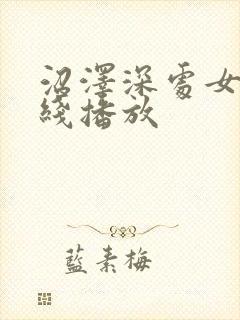 沼澤深處女
綫播放
藍素梅